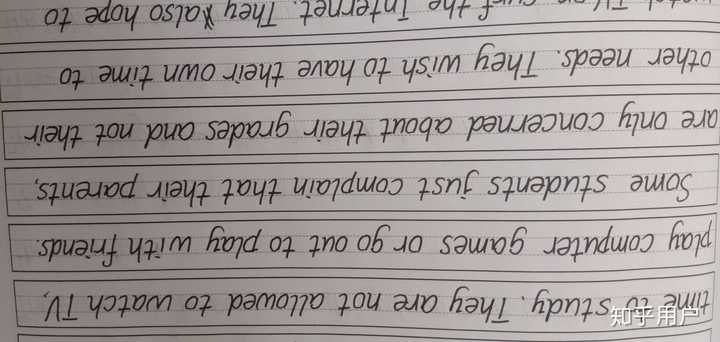 time to study. They are not allowed to watch TV,
play computer games or go out to play with friends.
Some students just complain that their parents,
are only concerned about their grades and not their
other needs. They wish to have their own time to
surf the Internet. They also hope to
知乎用户